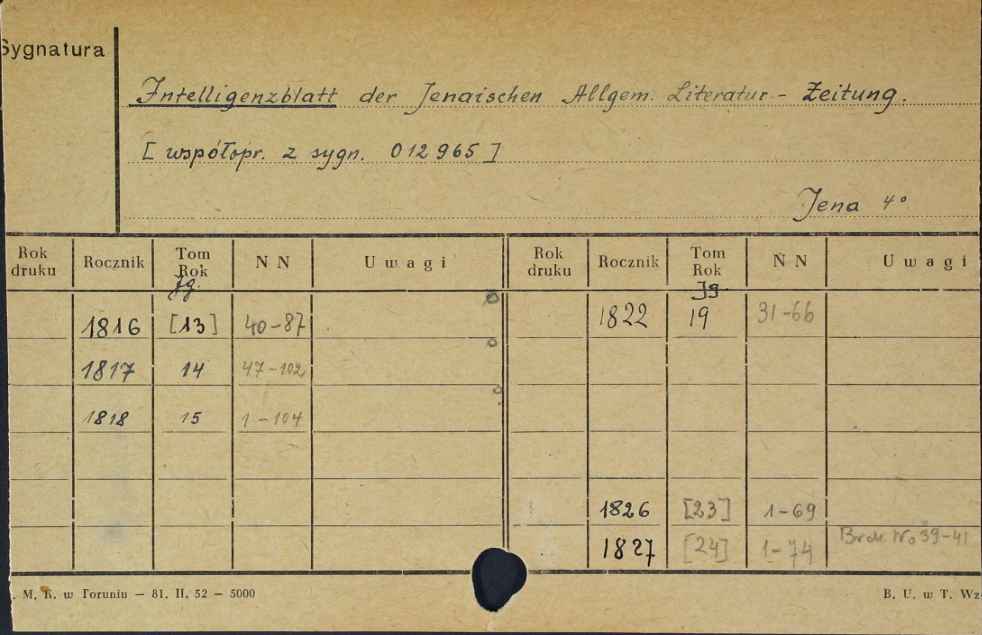 Sygnatura
Intelligenzblatt der Jenaischen Allgem. Literatur - Zeitung.
[ współopr. z sygn. 012965 ]
Jena 4°
Rok druku Rocznik Tom Rok Jg. N N Uwagi Rok druku Rocznik Tom Rok Jg. N N Uwagi
1816 [13] 40-87 1822 19 31-66
1817 14 47-102
1818 15 1-104
1826 [23] 1-69
1827 [24] 1-74 Brak No 39-41
. M. R. w Toruniu — 81. II. 52 — 5000 B. U. w T. Wz